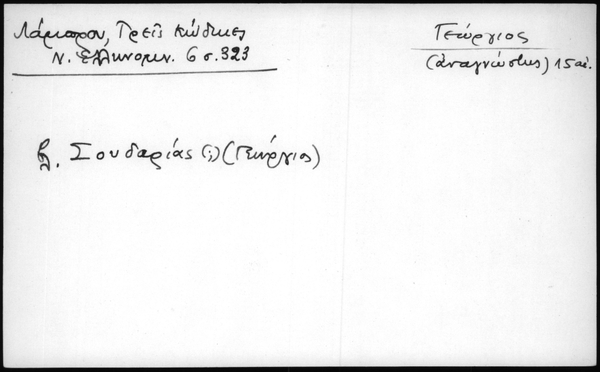 Λάμπρου, Τρεῖς κώδικες
Ν. Ἑλληνομν. 6 σ. 323
Γεώργιος
(ἀναγνώστης) 15 αἰ.
βλ. Σουδαρίας (;) (Γεώργιος)